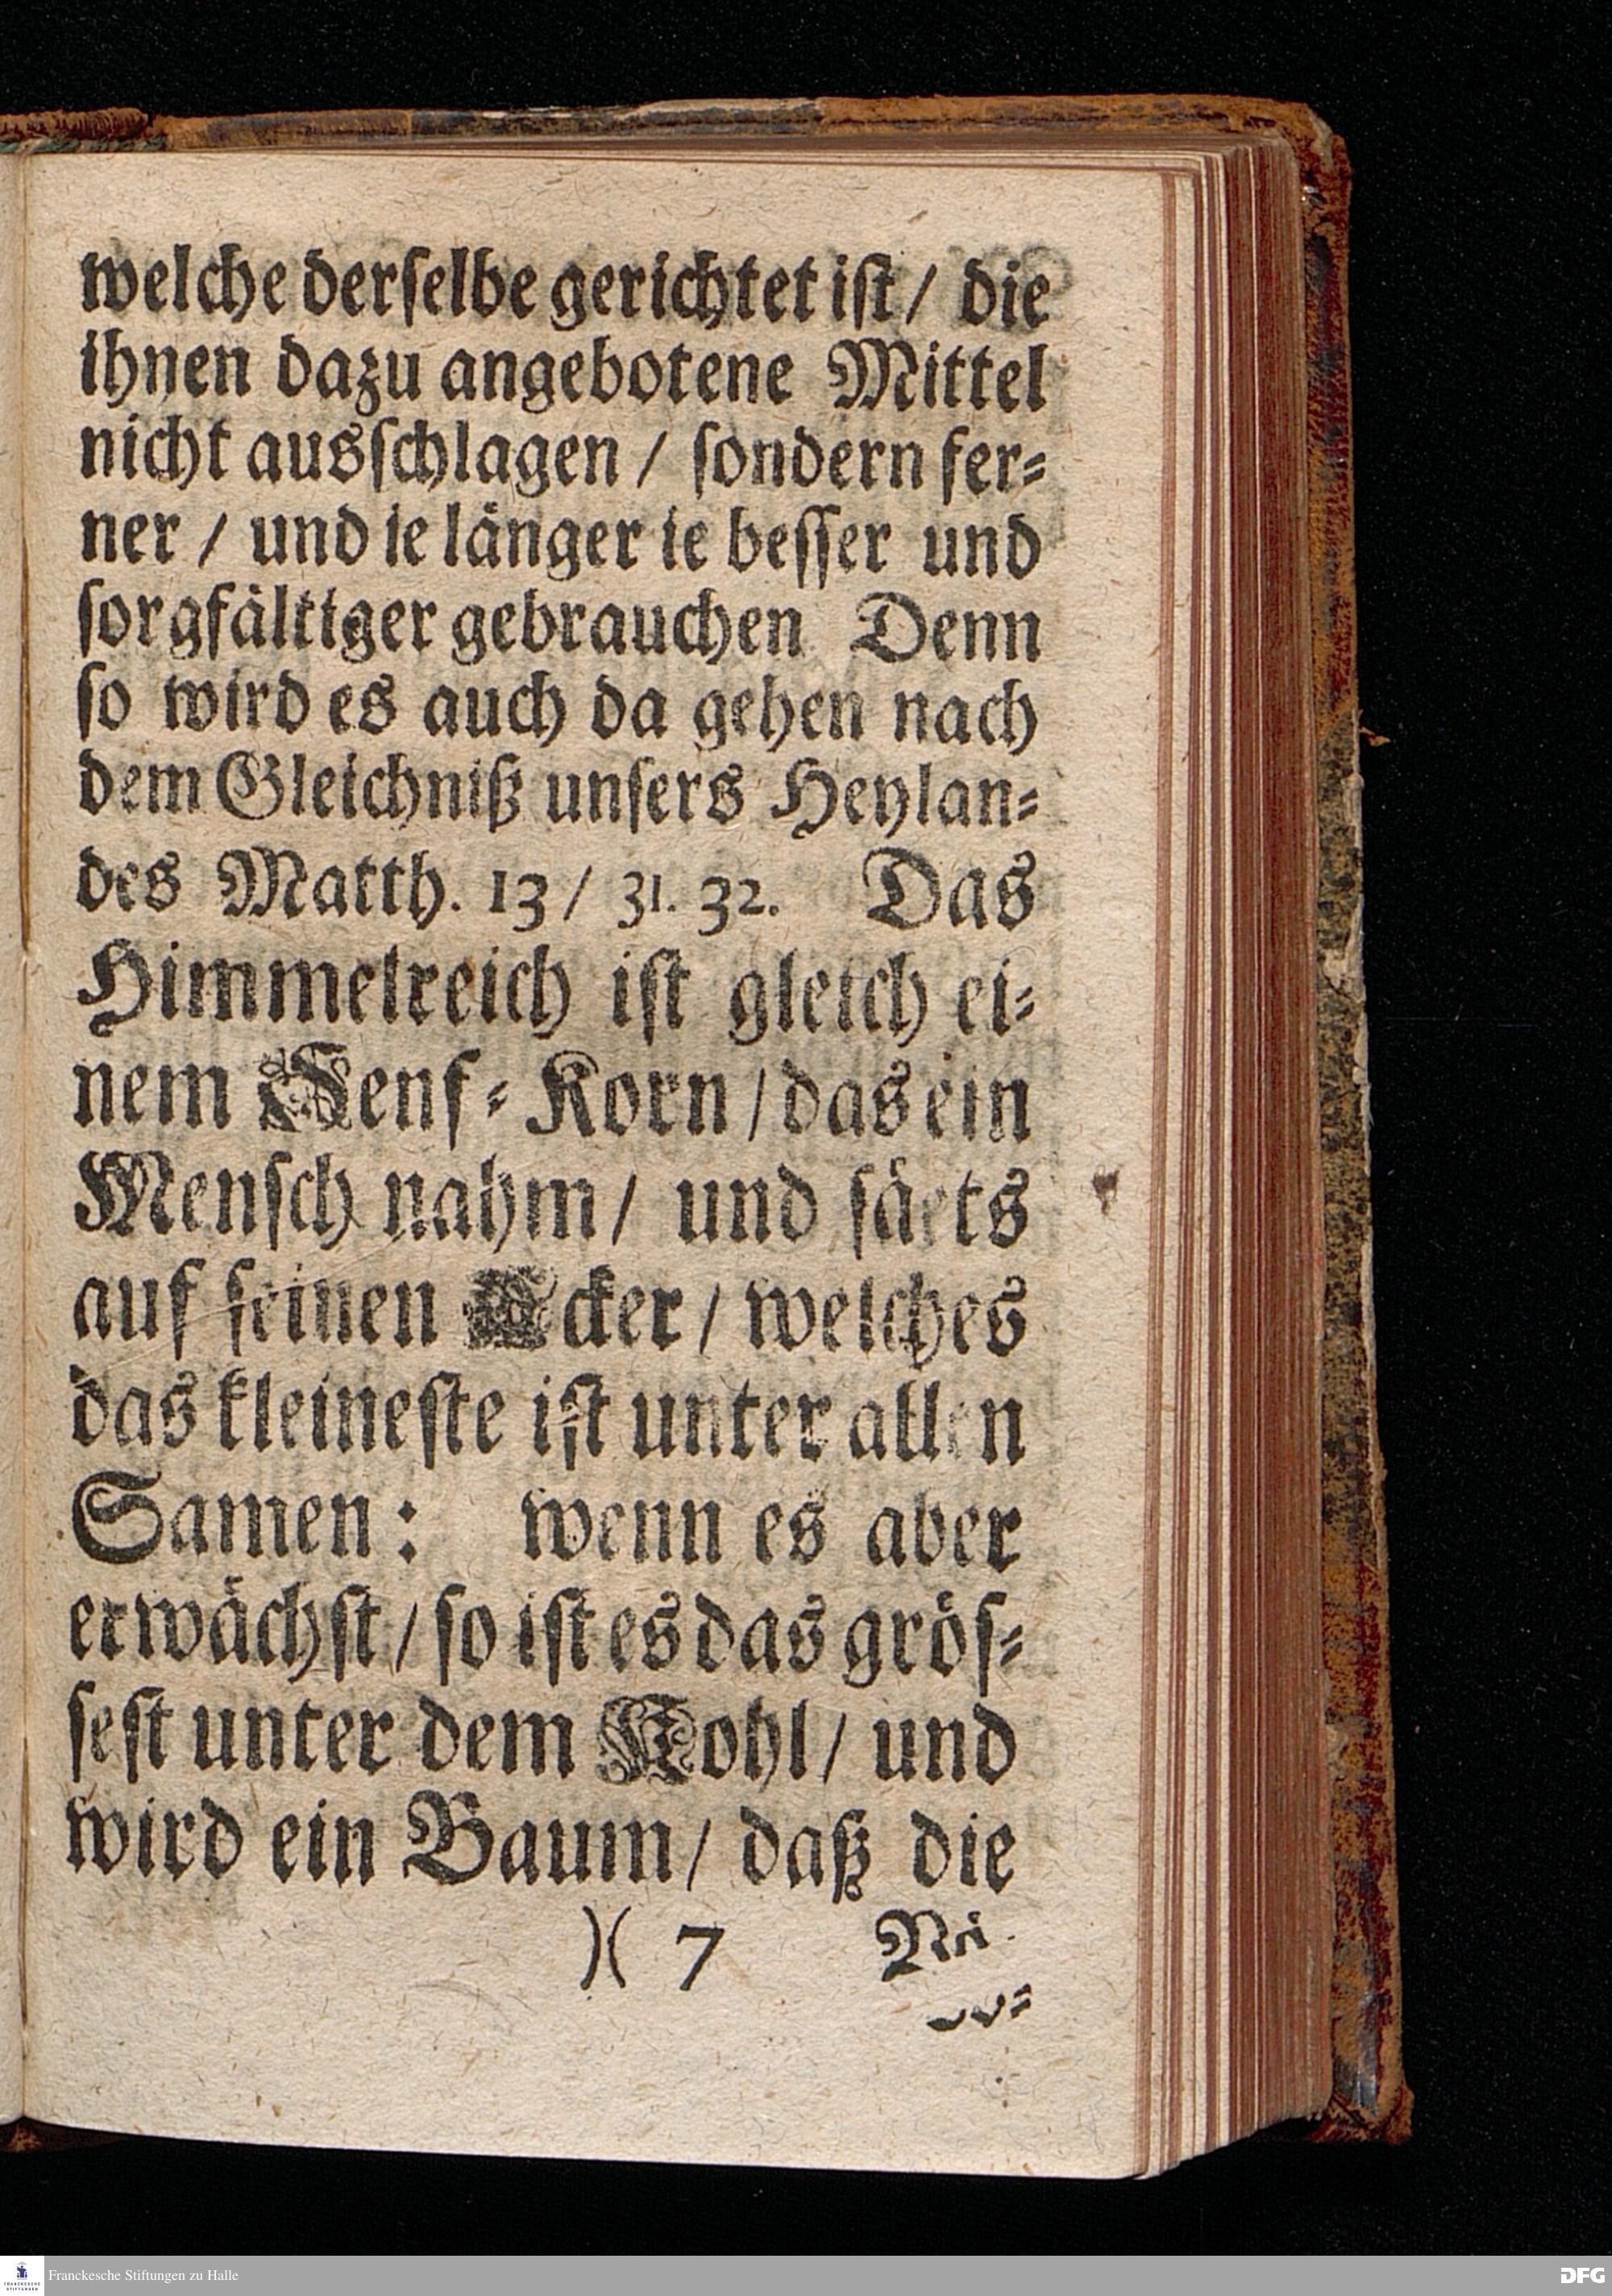 welche derſelbe gerichtet iſt / die
ihnen dazu angebotene Mittel
nicht ausſchlagen / ſondern fer⸗
ner / und ie länger ie beſſer und
ſorgfältiger gebrauchen Denn
ſo wird es auch da gehen nach
dem Gleichniß unſers Heylan⸗
des Matth. 13 / 31. 32. Das
Himmelreich iſt gleich ei⸗
nem Senf⸗Korn / das ein
Menſch nahm / und ſäets
auf ſeinen Acker / welches
das kleineſte iſt unter allen
Samen: wenn es aber
erwächſt / ſo iſt es das gröſ⸗
ſeſt unter dem Kohl / und
wird ein Baum / daß die
)( 7 Vö
Franckesche Stiftungen zu Halle
FRANCKESCHE
STIFTUNGEN
DFG